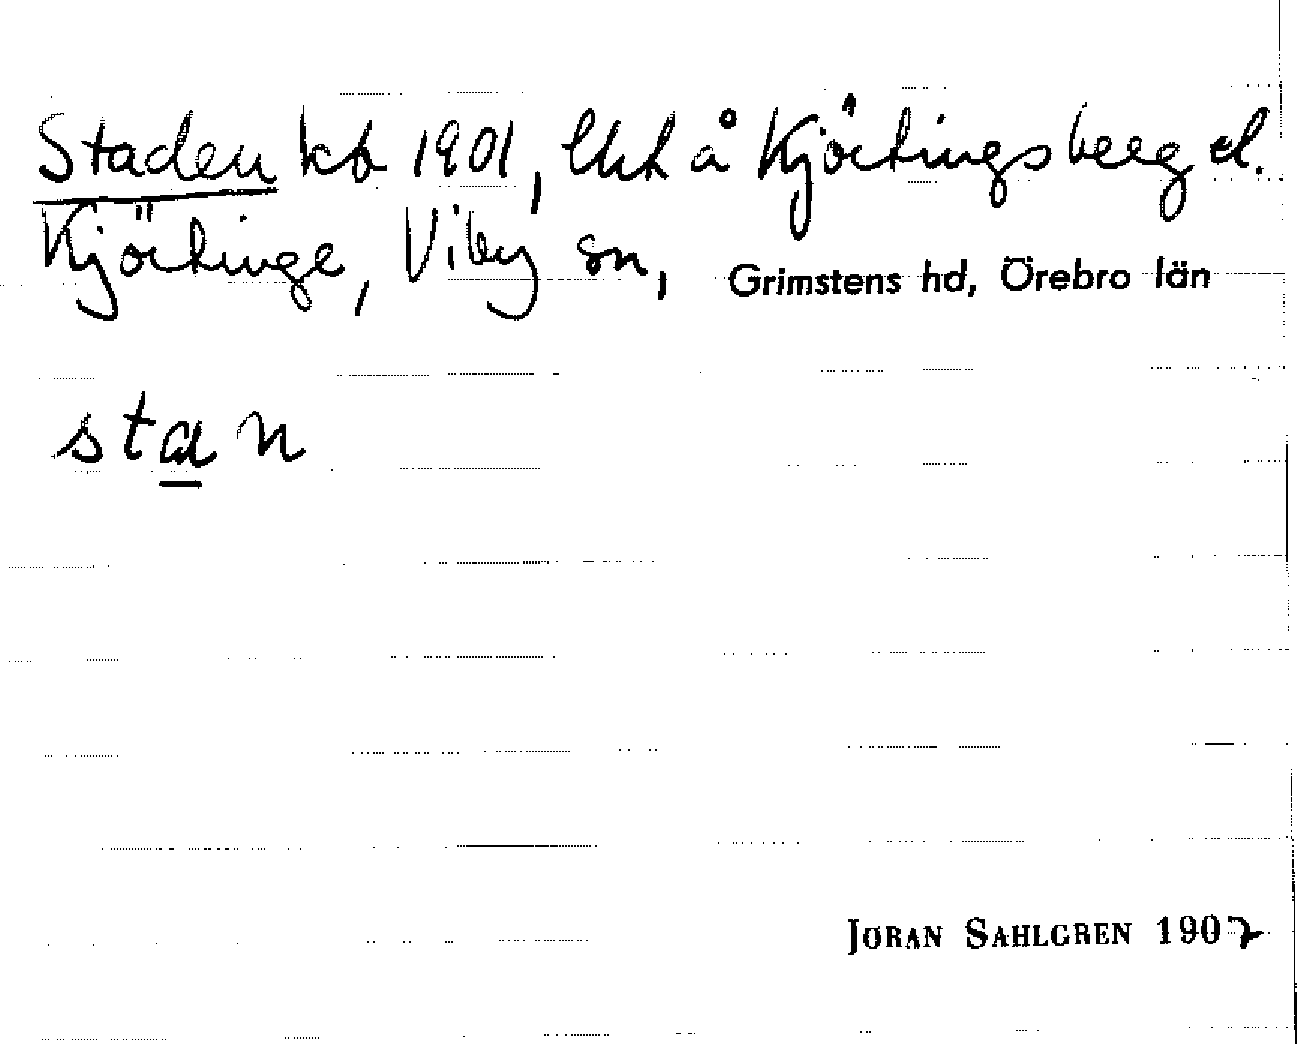 Staden kb 1901, lht å Kjörtingsberg el.
Kjörtinge, Viby sn, Grimstens hd, Örebro län
stan
JÖRAN SAHLGREN 1907